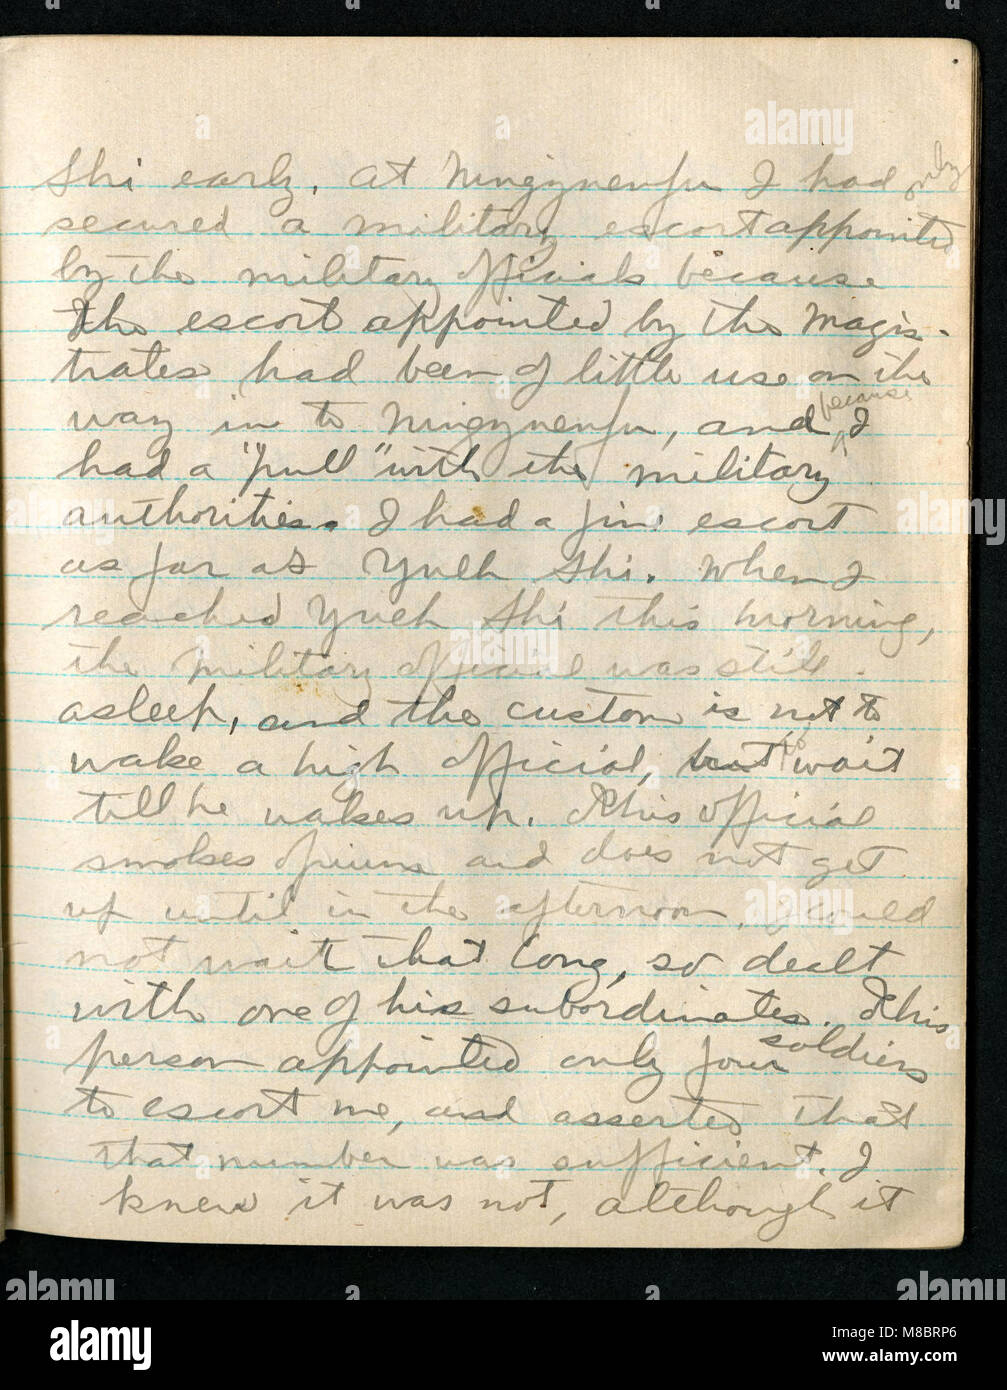 Shi early. At Ningyuenfu I had only
secured a military escort appointed
by the military officials because
the escort appointed by the Magis-
trates had been of little use on the
way in to Ningyuenfu, and because I
had a "pull" with the military
authorities. I had a fine escort
as far as Yueh Shi. When I
reached Yueh Shi this morning,
the military official was still
asleep, and the custom is not to
wake a high official, but to wait
till he wakes up. This official
smokes opium and does not get
up until in the afternoon, I could
not wait that long, so dealt
with one of his subordinates. This
person appointed only four soldiers
to escort me, and asserted that
that number was sufficient. I
knew it was not, although it
alamy
Image ID: M8BRP6
www.alamy.com